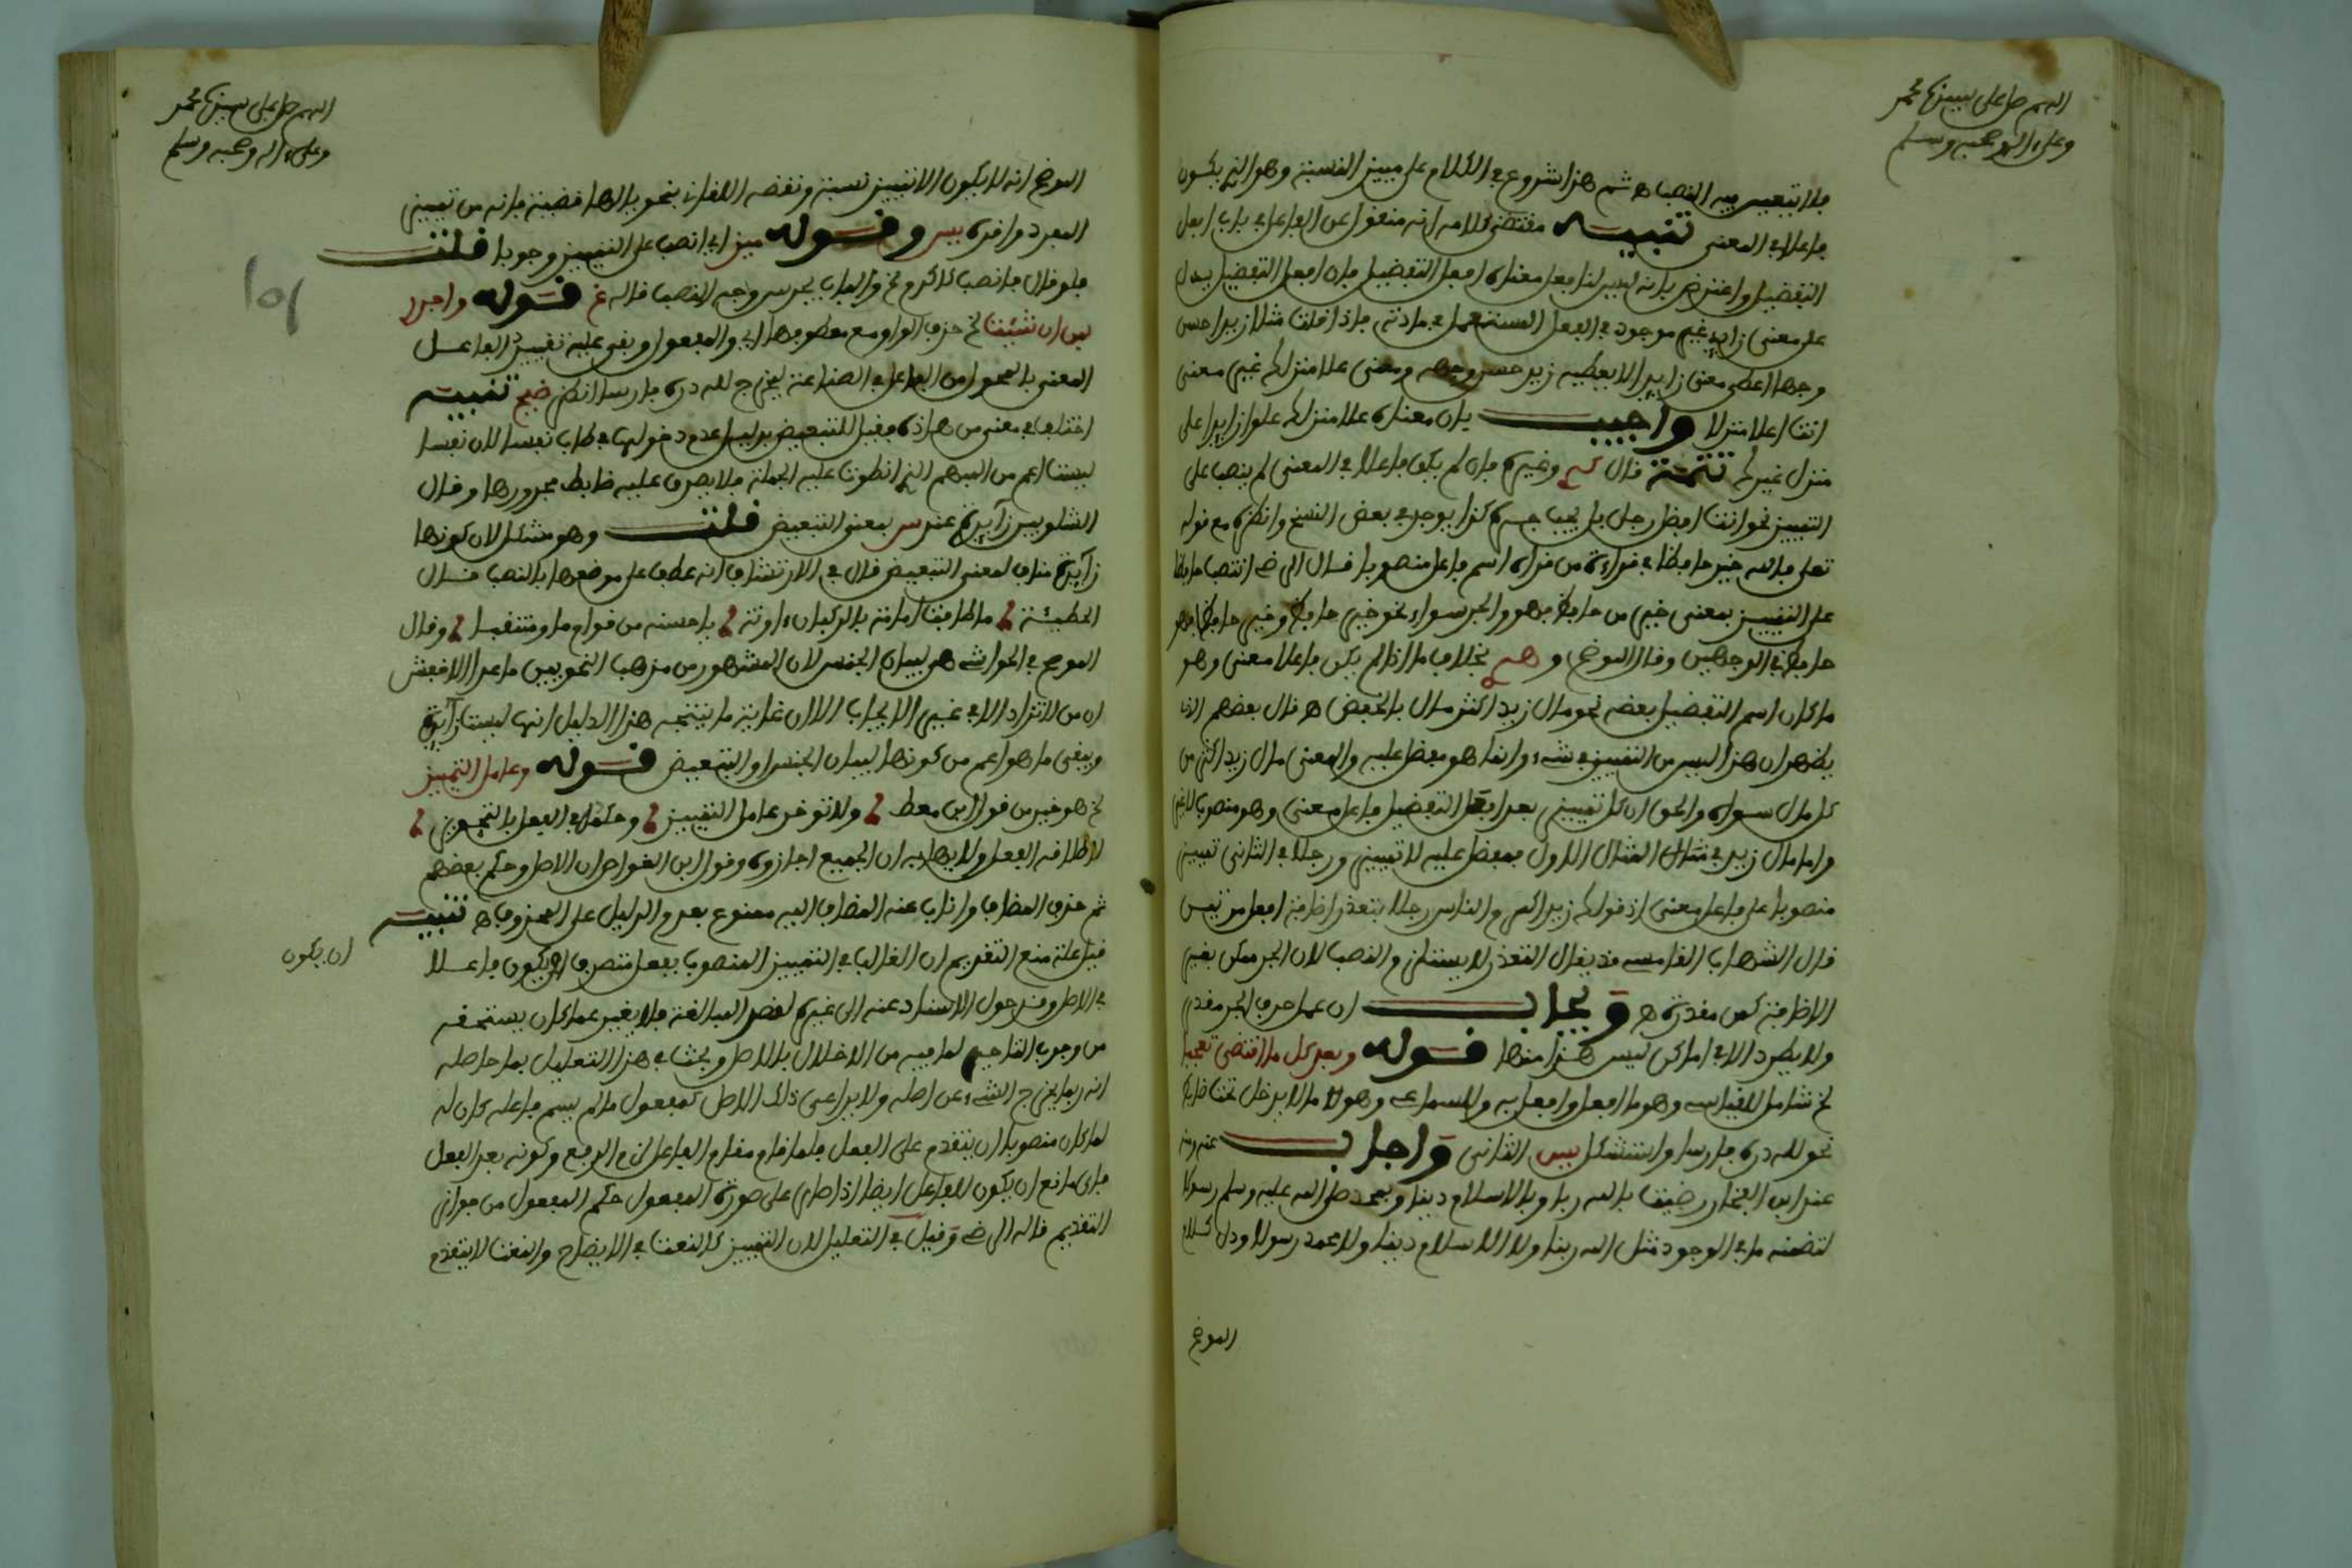 اللهم صل على سيدنا محمد
وعلى ءاله وصحبه وسلم
فلا يتعين فيه النصب اه ثم هذا شروع في الكلام على مميز النسبة وهو الذي يكون
فاعلا في المعنى تنبيه مقتضى كلامه انه منقول عن الفاعل في باب افعل
التفضيل واعترض بانه ليس لنا فعل معناه افعل التفضيل فان افعل التفضيل يدل
على معنى زايد غير موجود في الفعل المستعمل في مادته فاذا قلت مثلا زيد احسن
وجها اعطى معنى زايدا لا يعطيه زيد حسن وجهه ومعنى علا منزلك غير معنى
انت اعلا منزلا واجيب بان معناه علا منزلك علوا زايدا على
منزل غيرك تتمة قال وغيره فان لم يكن فاعلا في المعنى لم ينصب على
التمييز نحو انت افضل رجل بل يجب جره كذا يوجد في بعض النسخ وانظره مع قوله
تعلى فالله خير حافظا في قراءة من قراه اسم فاعل منصوبا قال الرضي انتصب حافظا
على التمييز بمعنى خير من حافظ فهو والجر سواء نحو خير حافظ وخير حافظا فهو
حافظ في الوجهين وقال الموضح وهو بخلاف ما اذا لم يكن فاعلا معنى وهو
ما كان اسم التفضيل بعضه نحو مال زيد اكثر مال بالخفض اه قال بعضهم الذي
يظهر ان هذا ليس من التمييز في شيء وانما هو مفضل عليه والمعنى مال زيد اكثر من
كل مال سواه والحق ان كل تمييز بعد افعل التفضيل فاعل معنى وهو منصوب لا غير
واما مال زيد في المثال الاول فمفضل عليه لا تمييز ورجلا في الثاني تمييز
منصوبا على فاعل معنى اذ قولك زيد اكرم الناس رجلا يتعذر اضافة افعل مرتين
قال الشهاب القاسمي قد يقال التعذر لا يستلزم النصب لان الجر ممكن بغير
الاضافة كمن مقدرة اه ويجاب ان عمل حرف الجر مقدرا
ولا يطرد الا في اماكن ليس هذا منها قوله وبعد كل ما اقتضى تعجبا
لخ شامل للقياسي وهو ما افعل وافعل به والسماعي وهو ما لا يدخل تحت ضابط
نحو لله دره فارسا واستشكل يس الثاني واجاب عنه
عند ابن الفخار رضيت بالله ربا وبالاسلام دينا وبمحمد صلى الله عليه وسلم رسولا
لتضمنه ما في الوجود مثل الله ربنا ولا الاسلام دينا ولا محمد رسولا ودل كلام
الموضح
اللهم صل على سيدنا محمد
وعلى ءاله وصحبه وسلم
الموضح انه لا يكون الا تمييز نسبة ونقضه اللقاني بنحو يا لها قضية فانه من تمييز
المفرد واقره يس وقوله ميز اي انصب على التمييز وجوبا قلت
فلو قال فانصب كاكرم لخ والباب يجر س وجه النصب قاله غ قوله واجرر
بمن ان شئت لخ حذف الواو مع معطوفها اي والمفعول وبقي عليه تمييز الفاعل
المعنى بالمحول من الفاعل في الصناعة ليخرج لله دره فارسا انظر ضيح تنبيه
اختلف في معنى من هاذه فقيل للتبعيض بدليل عدم دخولها في طاب نفسا لان نفسا
ليست اعم من المبهم الذي انطوت عليه الجملة فلا يصرف عليه ضابط مجرورها وقال
الشلوبين زايدة عند س بمعنى التبعيض قلت وهو مشكل لان كونها
زايدة مناف لمعنى التبعيض قال في الارتشاف انه عطف على موضعها بالنصب قال
الحطيئة ، طافت امامة بالركبان ءاونة ، يا حسنه من قوام ما ومنتقبا ، وقال
الموضح في الحواشي هي لبيان الجنس لان المشهور من مذهب النحويين ما عدا الاخفش
ان من لا تزاد الا في غير الايجاب الا ان غاية ما ينتجه هذا الدليل انها ليست زايدة
وبقي ما هو اعم من كونها لبيان الجنس او التبعيض قوله وعامل التمييز
لخ هو خير من قول ابن معط ، ولا توخر عامل التمييز ، وحكمه في الفعل بالتجويز ،
لاطلاقه الفعل ولايهامه ان الجميع اجازوه وقول ابن الغواص ان الاصل وحكم بعضهم
ثم حذف المضاف واناب عنه المضاف اليه ممنوع بعدم الدليل على المحذوف اه تنبيه
قيل علة منع التقديم ان الغالب في التمييز المنصوب بفعل متصرف ان يكون فاعلا
ان يكون
في الاصل وقد حول الاسناد عنه الى غيره لقصد المبالغة فلا يغير عما كان يستحقه
من وجوب التاخير لما فيه من الاخلال بالاصل وبحث في هذا التعليل بما حاصله
انه ربما يخرج الشيء عن اصله ولا يراعى ذلك الاصل كمفعول ما لم يسم فاعله كان له
لما كان منصوبا ان يتقدم على الفعل فلما قام مقام الفاعل لزم الرفع وكونه بعد الفعل
فاي مانع ان يكون للفاعل ايضا اذا صار على صورة المفعول حكم المفعول من جواز
التقديم قاله الرضي وقيل في التعليل لان التمييز كالنعت في الايضاح والنعت لا يتقدم